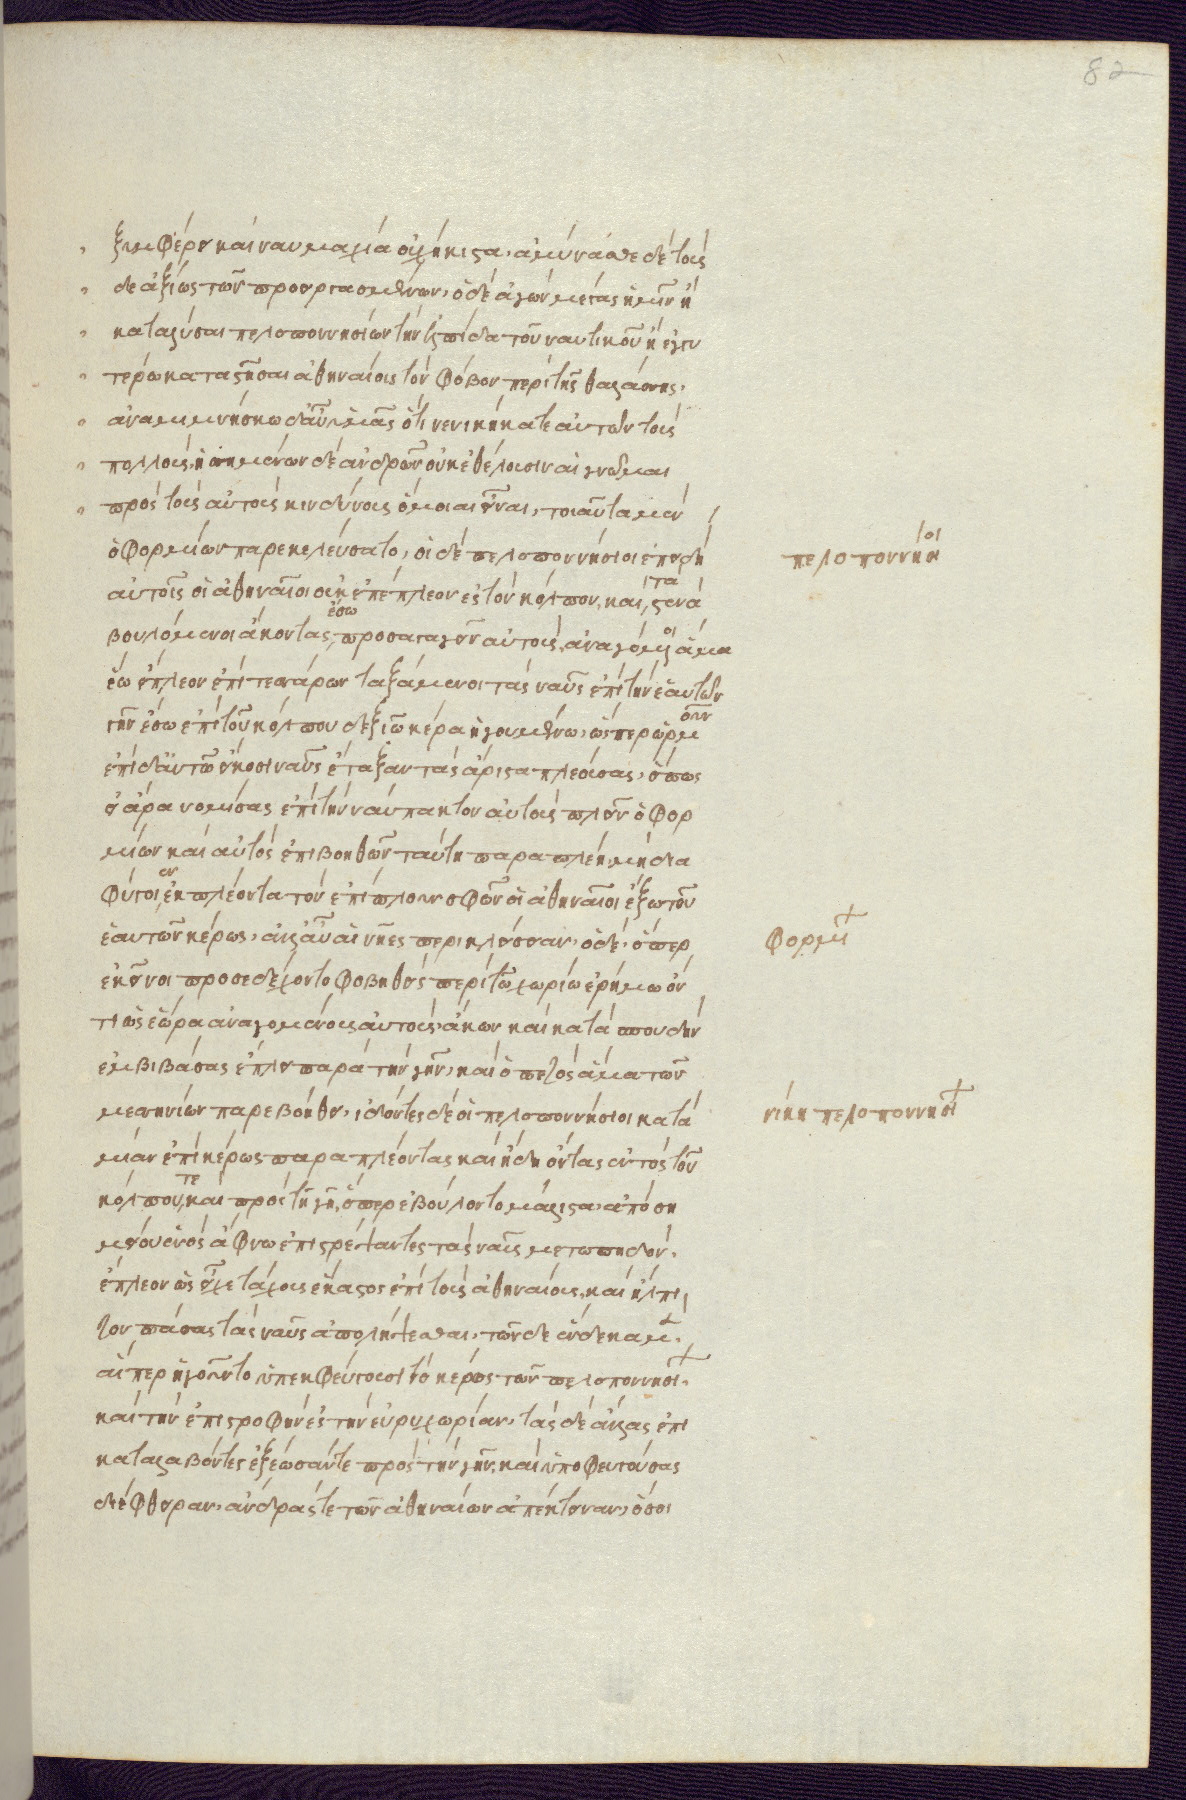 82
ξυμφέρει καὶ ναυμαχία οὐχ ήκιστα, ἀμύνασθε δὲ τούς
δε ἀξίως τῶν προειργασμένων, ὁ δὲ ἀγὼν μέγας ἡμῖν ἢ
καταλύσαι πελοποννησίων τὴν ἐλπίδα τοῦ ναυτικοῦ ἢ ἐγγυ
τέρω καταστῆσαι ἀθηναίοις τὸν φόβον περὶ τῆς θαλάσσης,
ἀναμιμνήσκω δ' αὖ ὑμᾶς ὅτι νενικήκατε αὐτῶν τοὺς
πολλούς, ἡσσημένων δὲ ἀνδρῶν οὐκ ἐθέλουσιν αἱ γνῶμαι
πρὸς τοὺς αὐτοὺς κινδύνους ὁμοιαι εἶναι, τοιαῦτα μὲν
ὁ φορμίων παρεκελεύσατο, οἱ δὲ πελοποννήσιοι ἐπειδὴ
πελοποννήσιοι
αὐτοῖς οἱ ἀθηναῖοι οὐκ ἐπέπλεον ἐς τὸν κόλπον, καὶ τὰ στενὰ
βουλόμενοι ἄκοντας ἔσω προσαγαγεῖν αὐτοὺς, ἀναγόμενοι ἅμα
ἕω ἔπλεον ἐπὶ τεσσάρων ταξάμενοι τὰς ναῦς ἐπὶ τὴν ἑαυτῶν
γῆν ἔσω ἐπὶ τοῦ κόλπου δεξιῶ κέρα ἡγουμένω, ὥσπερ ὥρμουν
ἐπὶ δ' αὐτῶ εἴκοσι ναῦς ἔταξαν τὰς ἄριστα πλεούσας, ὅπως
εἰ ἄρα νομίσας ἐπὶ τὴν ναύπακτον αὐτοὺς πλεῖν ὁ φορ
μίων καὶ αὐτὸς ἐπιβοηθῶν ταύτη παραπλέη, μὴ δια
φύγοιεν ἐκπλέοντα τὸν ἐπίπλουν σφῶν οἱ ἀθηναῖοι ἔξω τοῦ
ἑαυτῶν κέρως, ἀλλ' αὖ αἱ νῆες περικλείσειαν, ὁ δὲ, ὅπερ
φορμίων
ἐκεῖνοι προσεδέχοντο φοβηθεὶς περὶ τῶ χωρίω ἐρήμω ὄν
τι ὡς ἑώρα ἀναγομένους αὐτοὺς, ἄκων καὶ κατὰ σπουδὴν
ἐμβιβάσας ἔπλει παρὰ τὴν γῆν, καὶ ὁ πεζὸς ἅμα τῶν
μεσσηνίων παρεβοήθει, ἰδόντες δὲ οἱ πελοποννήσιοι κατὰ
νίκη πελοποννησίων
μίαν ἐπὶ κέρως παραπλέοντας καὶ ἤδη ὄντας ἐντὸς τοῦ
κόλπου τε, καὶ πρὸς τῆ γῆ, ὅπερ ἐβούλοντο μάλιστα, ἀπὸ ση
μείου ἑνὸς ἄφνω ἐπιστρέψαντες τὰς ναῦς μετωπηδὸν,
ἔπλεον ὡς εἶχε τάχους ἕκαστος ἐπὶ τοὺς ἀθηναίους, καὶ ἤλπι
ζον πάσας τὰς ναῦς ἀπολήψεσθαι, τῶν δὲ ἕνδεκα μὲν,
αἵπερ ἡγοῦντο ὑπεκφεύγουσι τὸ κέρας τῶν πελοποννησίων,
καὶ τὴν ἐπιστροφὴν ἐς τὴν εὐρυχωρίαν, τὰς δὲ ἄλλας ἐπι
καταλαβόντες ἐξέωσάν τε πρὸς τὴν γῆν, καὶ ὑποφευγούσας
διέφθειραν, ἄνδρας τε τῶν ἀθηναίων ἀπέκτειναν, ὅσοι